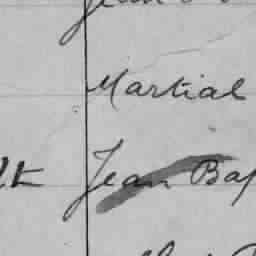 Martial
Jean Bap